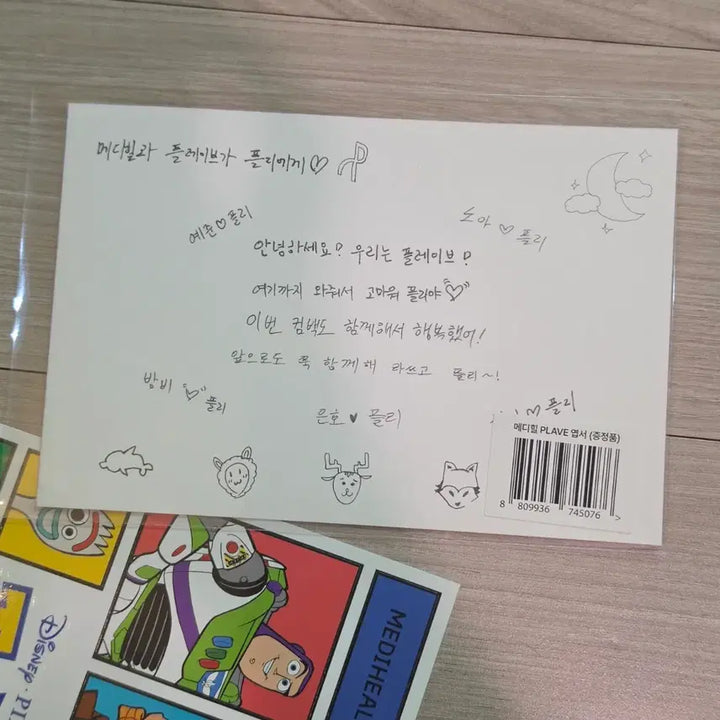 메디힐과 플레이브가 플리에게♡
예준♡플리
노아♡플리
안녕하세요? 우리는 플레이브?
여기까지 와줘서 고마워 플리야♡
이번 컴백도 함께해서 행복했어!
앞으로도 꼭 함께해 라쓰고 플리~!
밤비♡플리
은호♥플리
♡플리
메디힐 PLAVE 엽서 (증정품)
8 809936 745076 >
MEDIHEAL
Disney·PI